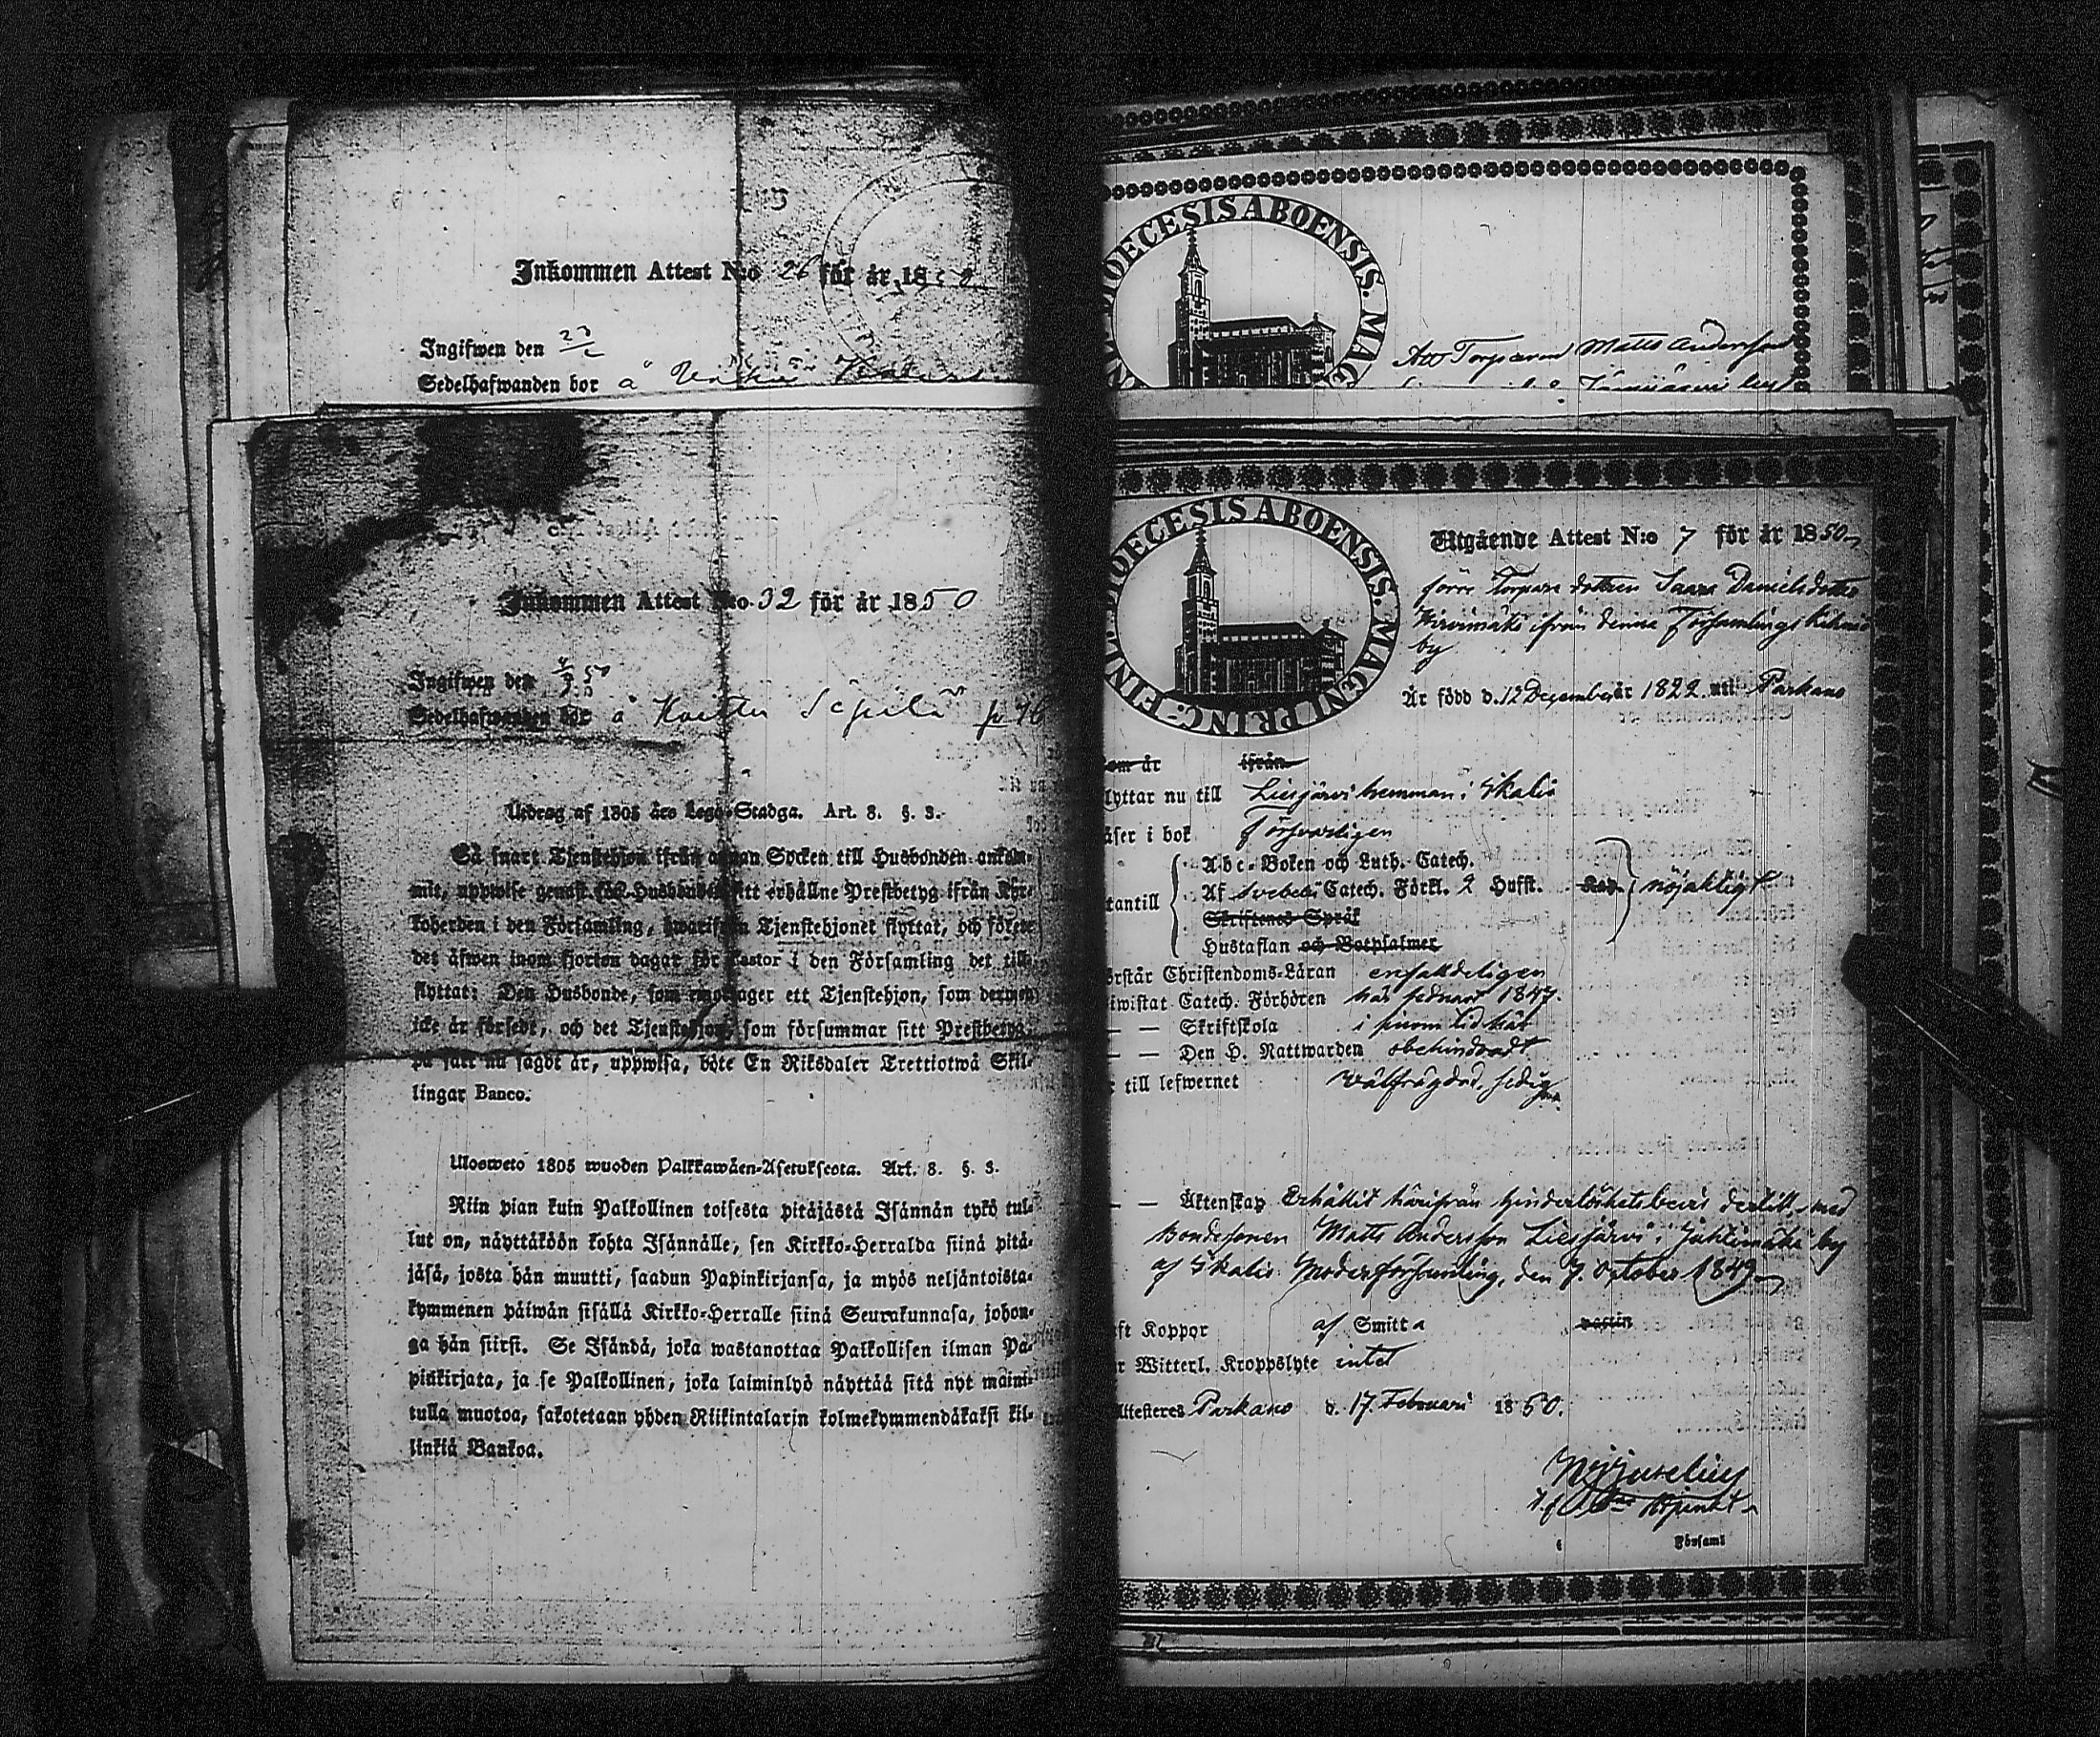 Inkommen Attest N:o 26 för år 18
Ingifwen den
Sedelhafwanden bor å
Inkommen Attest N:o 32 för år 1850
Ingifwen den
Sedelhafwanden bor å Sépilä p 46
Utdrag af 1805 års Lego-Stadga. Art. 8. §. 3.
Så snart Tjenstehjon ifrån annan Socken till Husbonden ankom-
mit, uppwise genast för Husbonden sitt erhållne Prestbetyg ifrån Kyr-
koherden i den Församling, hwarifrån Tjenstehjonet flyttat, och förete
det äfwen inom fjorton dagar för Pastor i den Församling det till-
flyttat: Den Husbonde, som emottager ett Tjenstehjon, som dermed
icke är försedt, och det Tjenstehjon, som försummar sitt Prestbetyg,
på sätt nu sagdt är, uppwisa, böte En Riksdaler Trettiotwå Skil-
lingar Banco.
Ulosweto 1805 wuoden Palkkawäen-Asetuksesta. Art. 8. §. 3.
Niin pian kuin Palkollinen toisesta pitäjästä Isännän tykö tul-
lut on, näyttäköön kohta Isännälle, sen Kirkko-Herralda siinä pitä-
jäsä, josta hän muutti, saadun Papinkirjansa, ja myös neljäntoista-
kymmenen päiwän sisällä Kirkko-Herralle siinä Seurakunnasa, johon-
ga hän siirst. Se Isändä, joka wastanottaa Palkollisen ilman Pa-
pinkirjata, ja se Palkollinen, joka laiminlyö näyttää sitä nyt maini-
tulla muotoa, sakotetaan yhden Riikintalarin kolmekymmendäkaksi kil-
linkiä Bankoa.
DIOECESIS ABOENSIS. MAG
Att Torparen Matts Andersson
DIOECESIS ABOENSIS. MAGNI PRINC. FINL.
Utgående Attest N:o 7 för år 1850
förre Torpare dottren Saara Danielsdotter
ifrån denna Församlings Kihniö
by
Är född d. 12 December år 1822 uti Parkano
om år ifrån
lyttar nu till Liesjärvi hemman i Ikalis
äser i bok Försvarligen
tantill
Abc-Boken och Luth. Catech.
Af Svebeli Catech. Förkl. 2 Hufst. Kap. nöjaktigt
Skriftenes Språk
Hustaflan och Botpsalmer
örstår Christendoms-Läran enfaldeligen
iwistat Catech. Förhören här sednast 1847.
— — Skriftskola i sinom tid här
— — Den H. Nattwarden obehindradt
r till lefwernet välfrägdad, sedig
— — Äktenskap Erhållit härifrån hinderlöshetsbevis dertill, med
Bondesonen Matts Andersson Liesjärvi i Juhtimäki by
af Ikalis Moderförsamling, den 7. October 1849
ft Koppor af Smitta vaccin
r Witterl. Kroppslyte intet
Attesteres Parkano d. 17 Februari 1850.
Församl